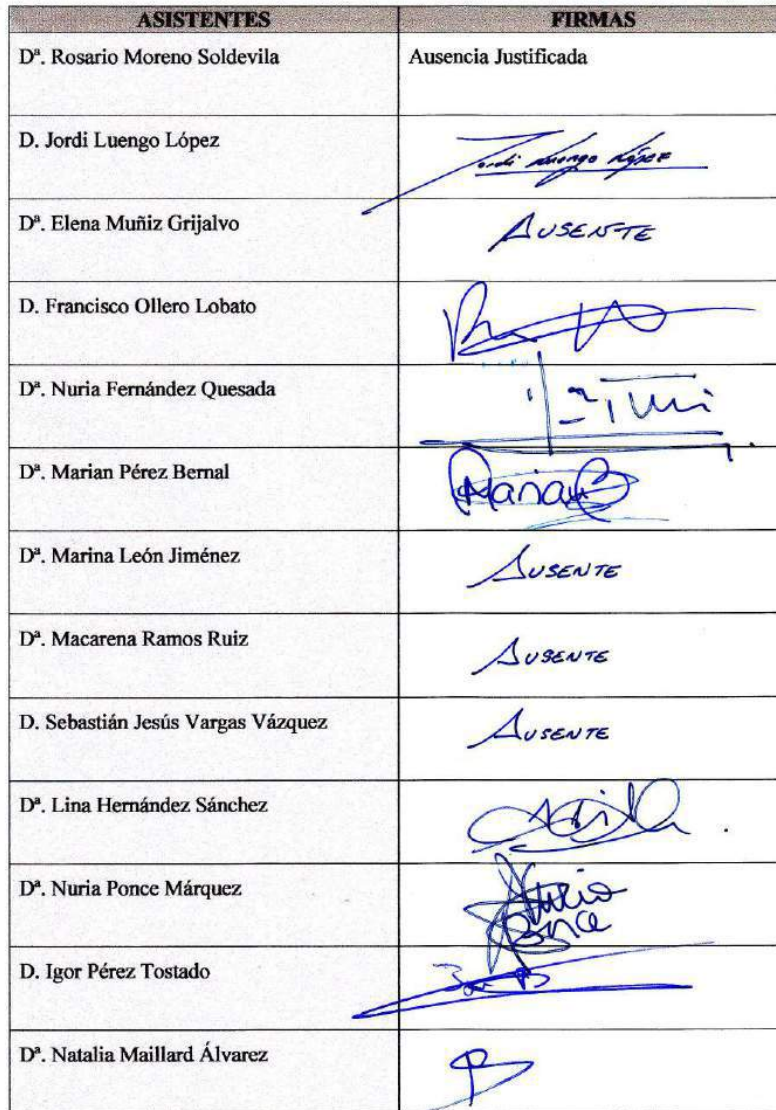 ASISTENTES FIRMAS
Dª. Rosario Moreno Soldevila Ausencia Justificada
D. Jordi Luengo López Jordi Luengo López
Dª. Elena Muñiz Grijalvo AUSENTE
D. Francisco Ollero Lobato
Dª. Nuria Fernández Quesada
Dª. Marian Pérez Bernal Marian
Dª. Marina León Jiménez AUSENTE
Dª. Macarena Ramos Ruiz AUSENTE
D. Sebastián Jesús Vargas Vázquez AUSENTE
Dª. Lina Hernández Sánchez
Dª. Nuria Ponce Márquez Nuria
Ponce
D. Igor Pérez Tostado
Dª. Natalia Maillard Álvarez